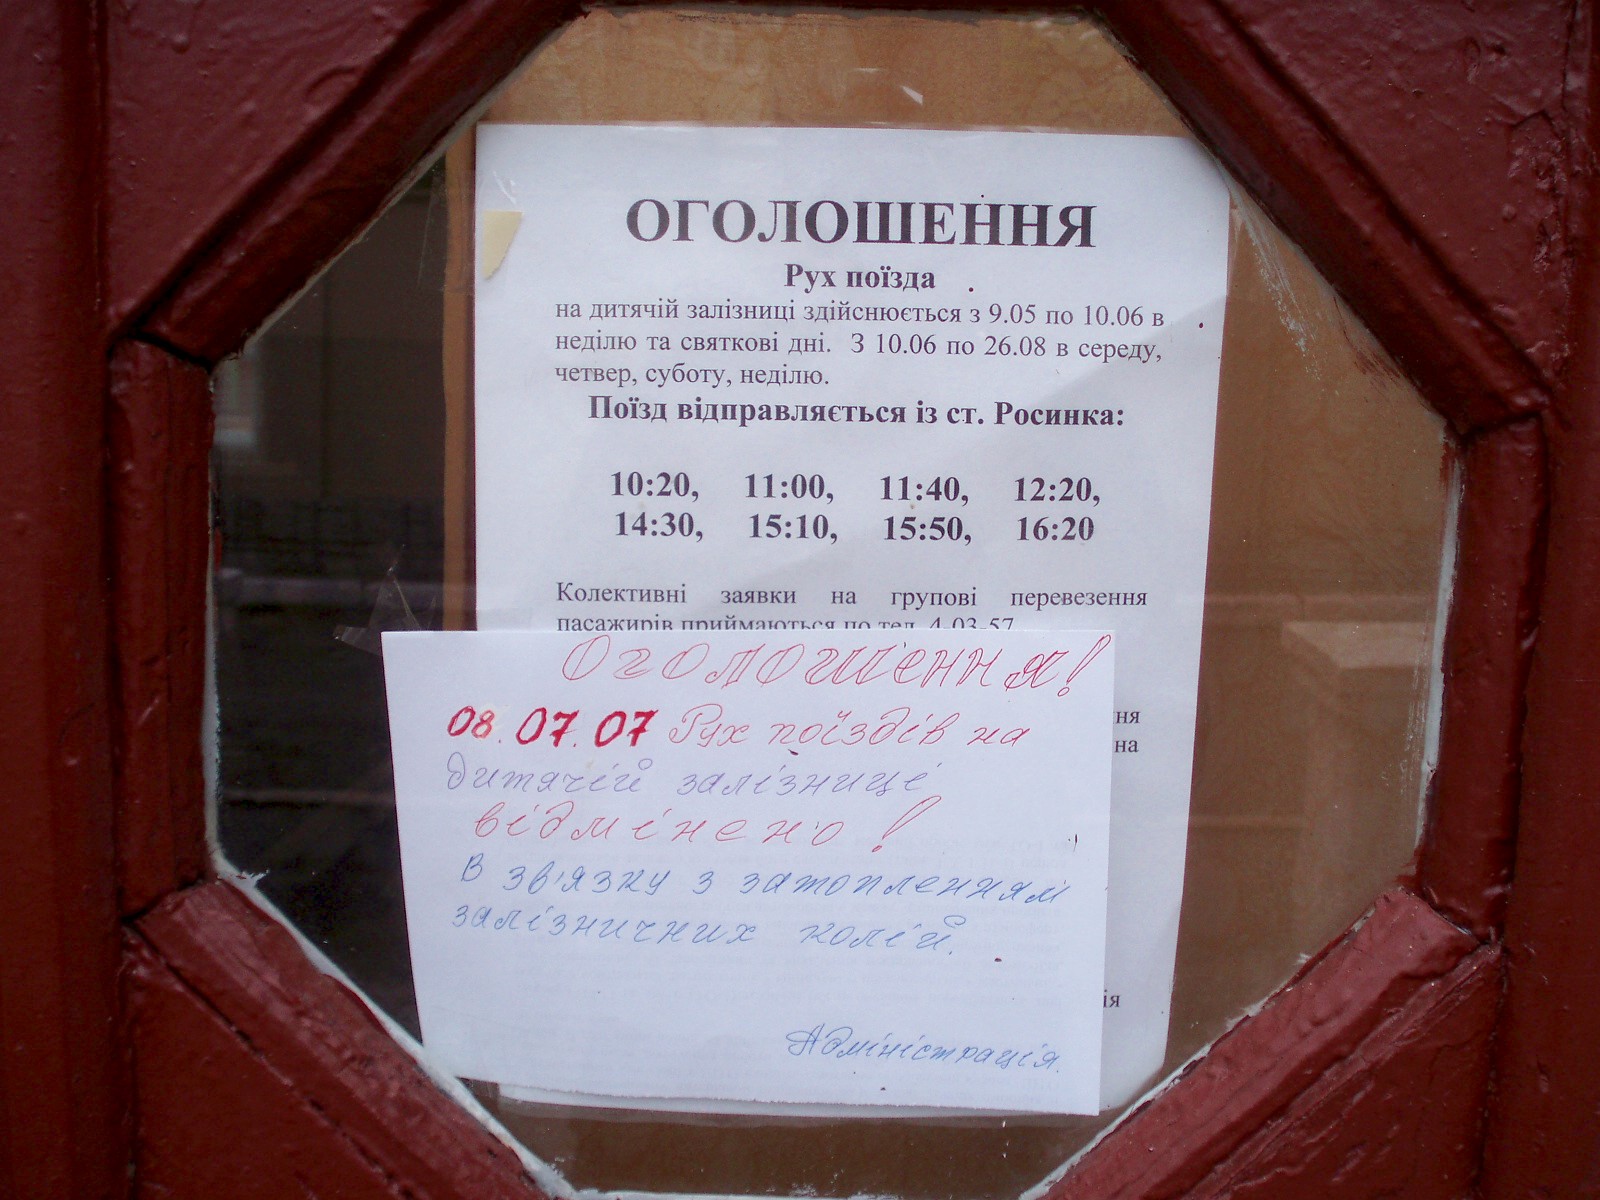 ОГОЛОШЕННЯ
Рух поїзда
на дитячій залізниці здійснюється з 9.05 по 10.06 в
неділю та святкові дні. З 10.06 по 26.08 в середу,
четвер, суботу, неділю.
Поїзд відправляється із ст. Росинка:
10:20, 11:00, 11:40, 12:20,
14:30, 15:10, 15:50, 16:20
Колективні заявки на групові перевезення
пасажирів приймаються по тел. 4-03-57
Оголошення!
08.07.07 Рух поїздів на
дитячій залізниці
відмінено!
В зв'язку з затопленням
залізничних колій.
Адміністрація.